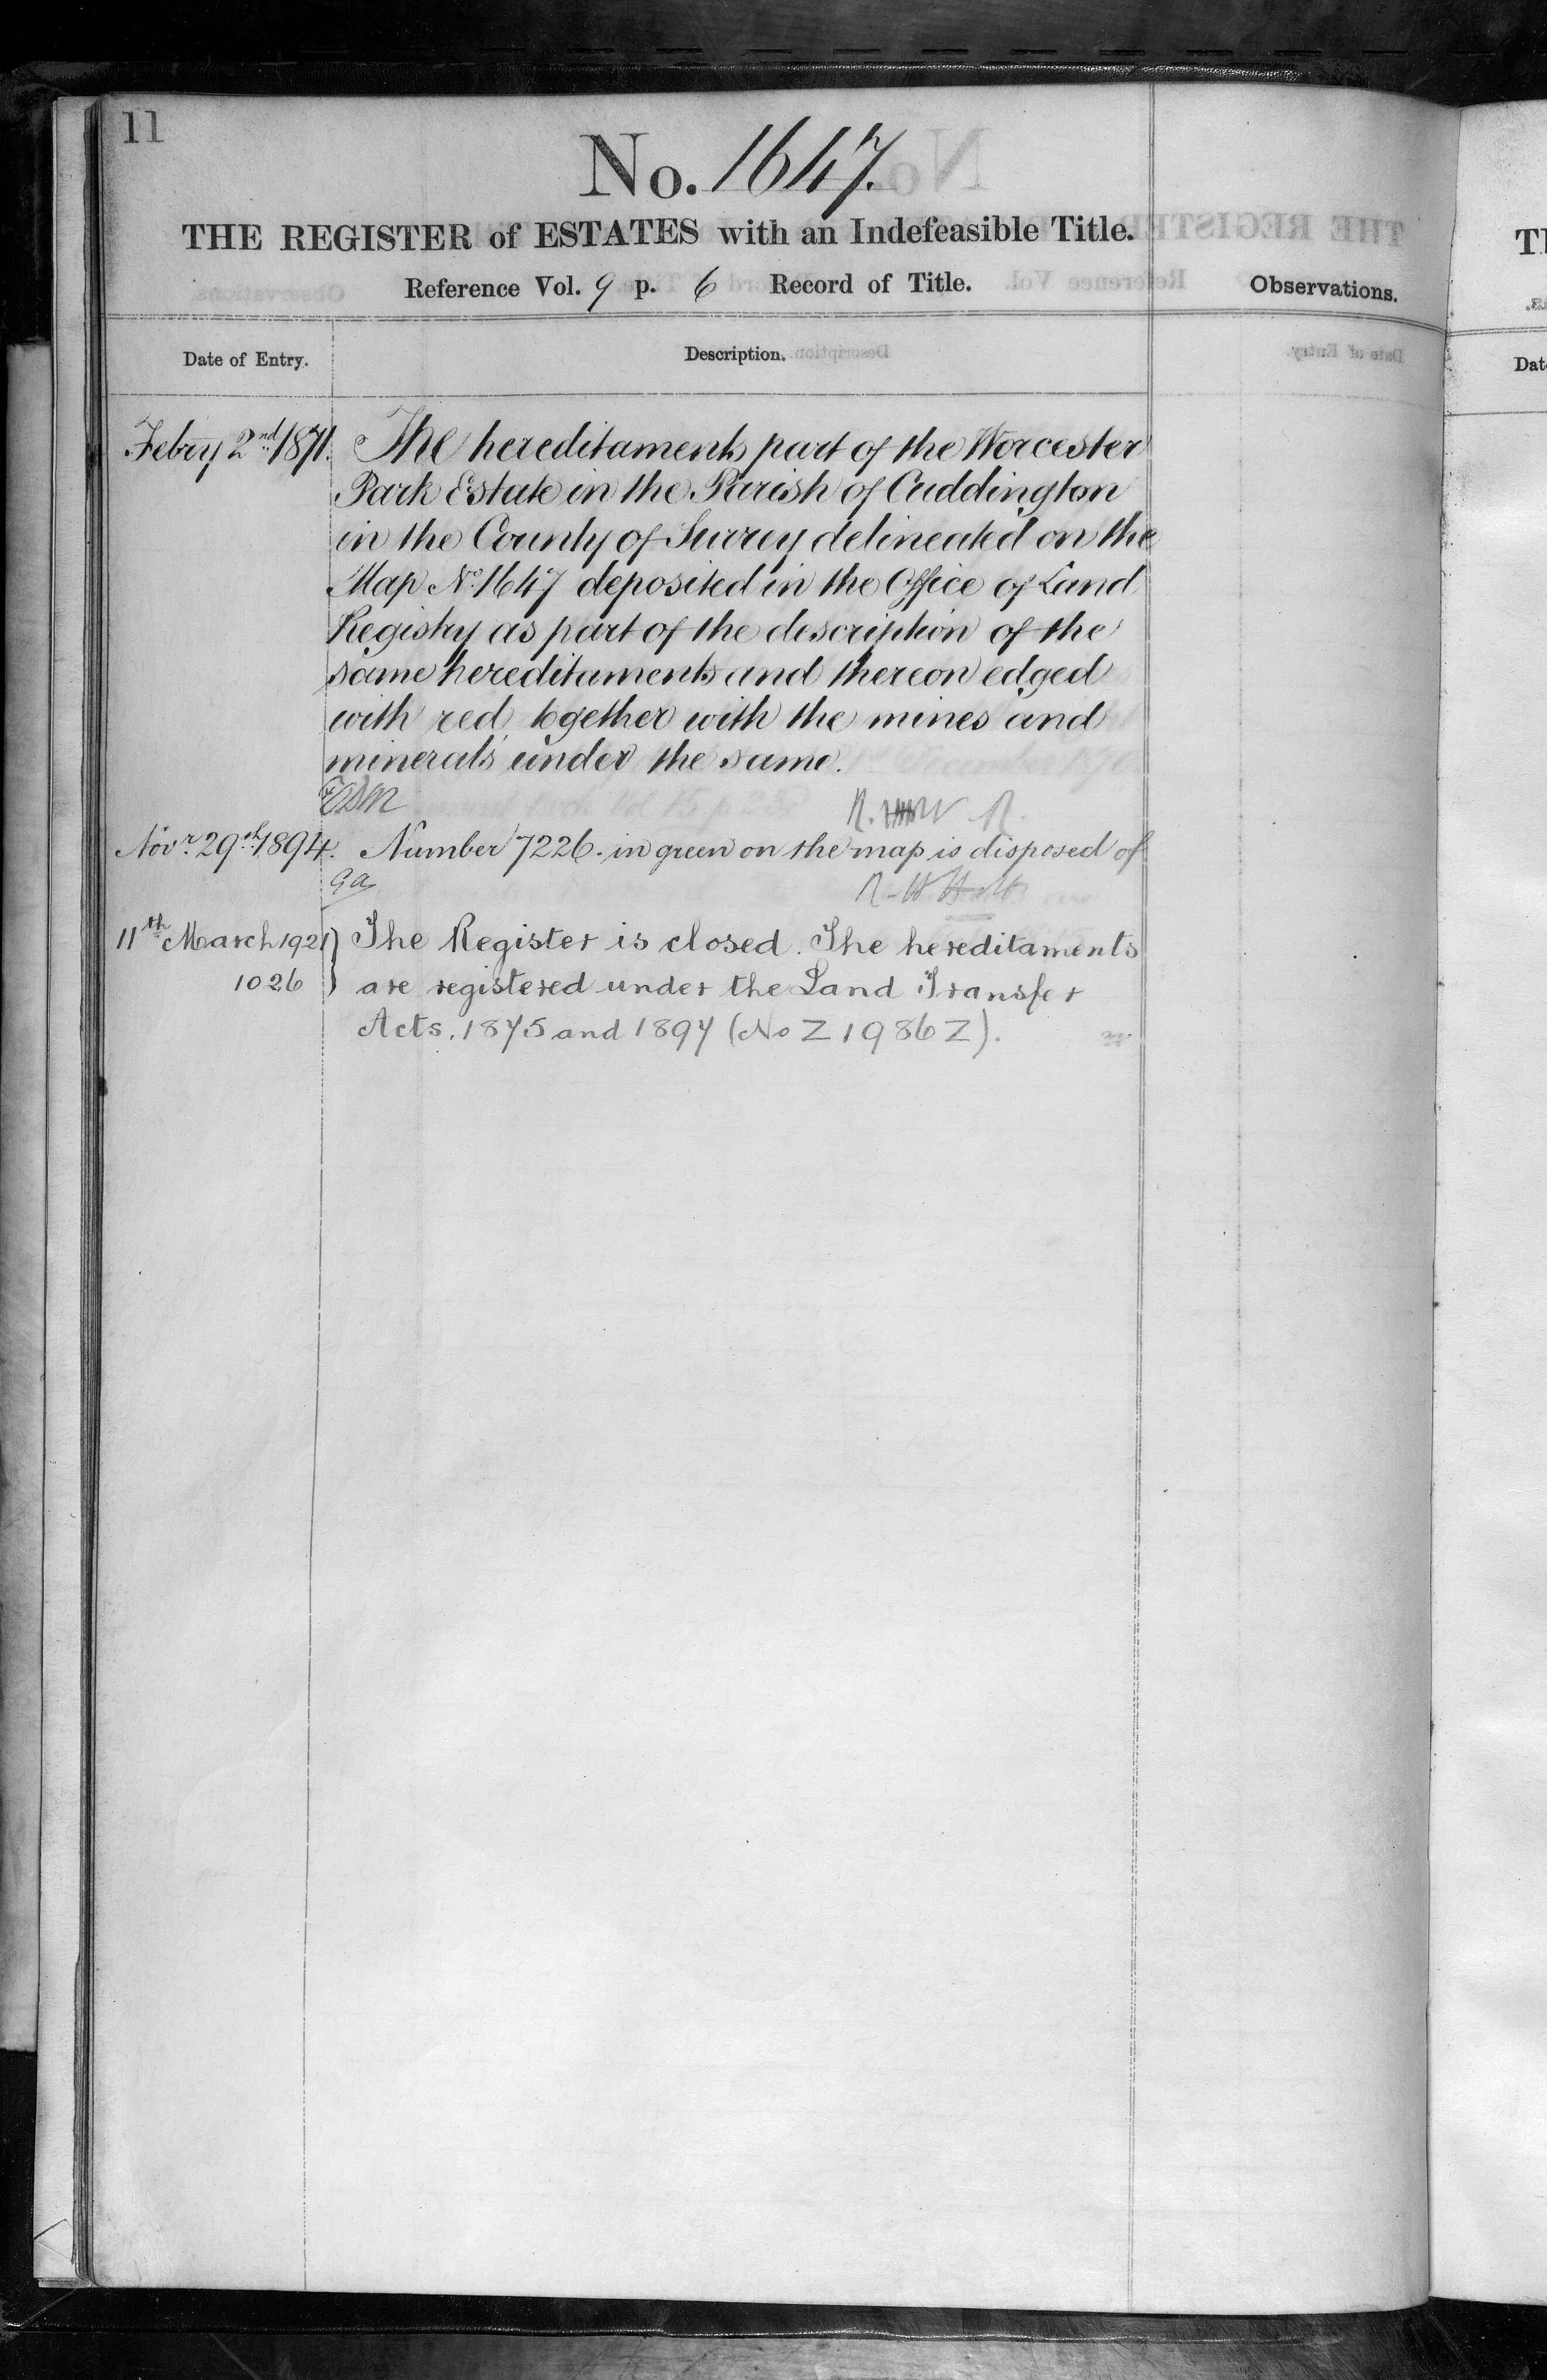 11
No. 1647.
THE REGISTER of ESTATES with an Indefeasible Title.
Reference Vol. 9 p. 6 Record of Title.
Observations.
Date of Entry.
Description.
Febry 2nd 1871. The hereditaments part of the Worcester
Park Estate in the Parish of Cuddington
in the County of Surrey delineated on the
Map No. 1647 deposited in the Office of Land
Registry as part of the description of the
same hereditaments and thereon edged
with red together with the mines and
minerals under the same.
Novr. 29th 1894. Number 7226. in green on the map is disposed of
11th March 1921) The Register is closed. The hereditaments
1026 ) are registered under the Land Transfer
Acts, 1875 and 1897 (No Z 1986 Z).